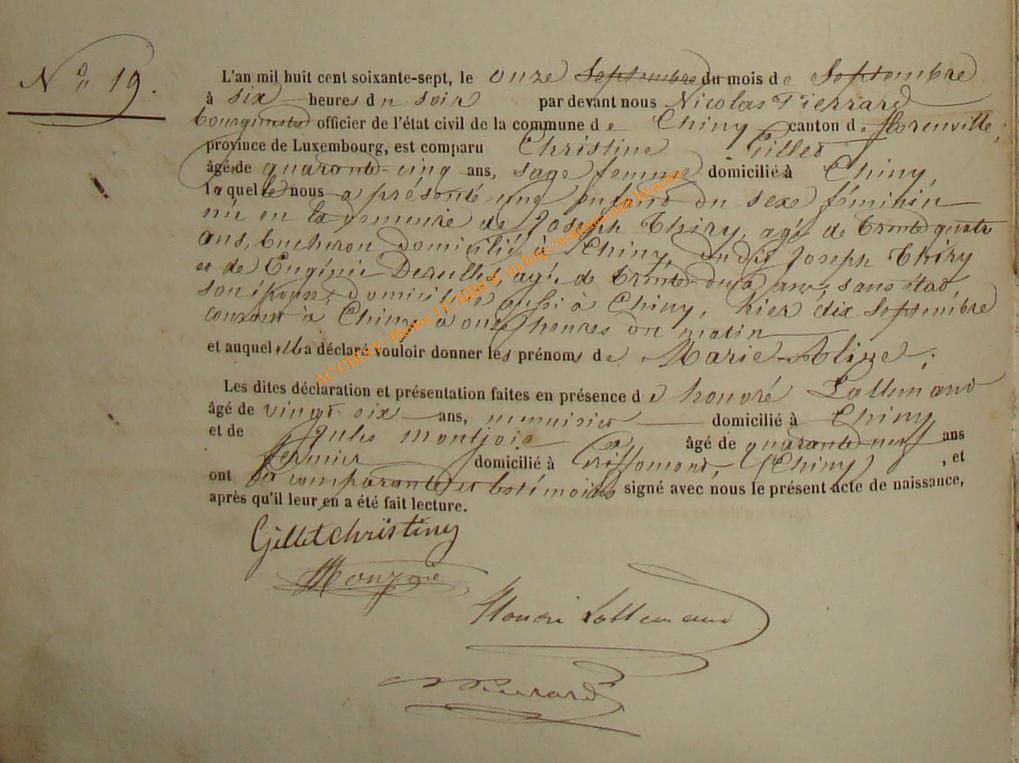 No 19.
L'an mil huit cent soixante-sept, le onze Septembre du mois de Septembre
à six heures du soir par devant nous Nicolas Pierrard
bourgmestre officier de l'état civil de la commune de Chiny canton de florenville,
province de Luxembourg, est comparu Christine Gillet
âgée de quarante-cinq ans, sage femme domicilié à Chiny,
laquelle nous a présenté une enfant du sexe féminin
né en la demeure de Joseph Thiry, agé de trente quatre
ans, bucheron domicilié à Chiny, dudit Joseph Thiry
et de Eugénie agée de trente deux ans, sans état
son épouse, domiciliée aussi à Chiny, hier dix septembre
courant à Chiny à onze heures du matin
et auquel elle a déclaré vouloir donner les prénoms de Marie-Aline;
Les dites déclaration et présentation faites en présence de honoré Lallemand
âgé de vingt-six ans, menuisier domicilié à Chiny
et de Jules montjoie âgé de quarante neuf ans
fermier domicilié à (Chiny), et
ont les comparante et les témoins signé avec nous le présent acte de naissance,
après qu'il leur en a été fait lecture.
Gillet christine
Honoré Lallemand
Pierrard